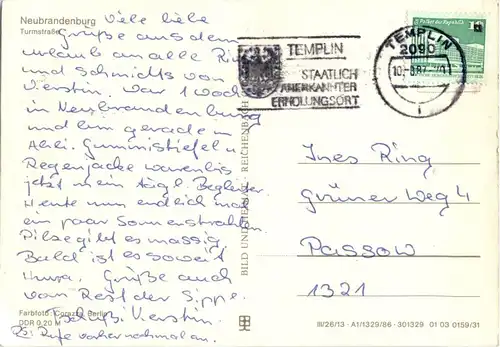 Neubrandenburg
Turmstraße
Viele liebe
Grüße aus dem
Urlaub an alle Rings
und Schmidts von
Kerstin. War 1 Woche
in Neubrandenburg
und bin gerade in
Ahli. Gummistiefel u.
Regenjacke waren bis
jetzt mein tägl. Begleiter.
Heute nun endlich mal
ein paar Sonnenstrahlen.
Pilze gibt es massig.
Bald ist es soweit
Hurra. Grüße auch
vom Rest der Sippe.
Tschüß Kerstin.
PS: Rufe vorher nochmal an.
Farbfoto: Corazza, Berlin
DDR 0,20 M
BILD UND HEIMAT · REICHENBACH
TEMPLIN
STAATLICH
ANERKANNTER
ERHOLUNGSORT
TEMPLIN
2090
Palast der Republik
10
Ines Ring
Grüner Weg 4
Passow
1321
III/26/13 · A1/1329/86 · 301329 01 03 0159/31